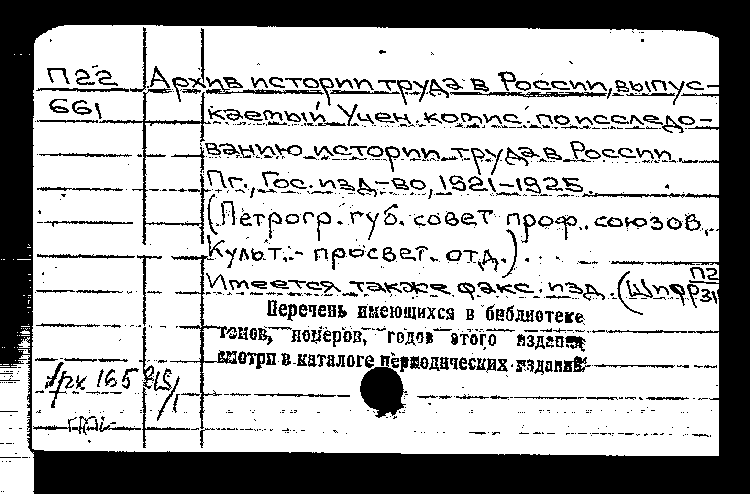 П22 Архив истории труда в России, выпус-
661 каемый Учен. комис. по исследо-
ванию истории труда в России.
Пг., Гос. изд-во, 1921-1925.
(Петрогр. губ. совет проф. союзов.
Культ.- просвет. отд.).
Имеется также факс. изд. (Шифр П2
31
Перечень имеющихся в библиотеке
томов, номеров, годов этого издания
смотри в каталоге периодических изданий.
Арх 165